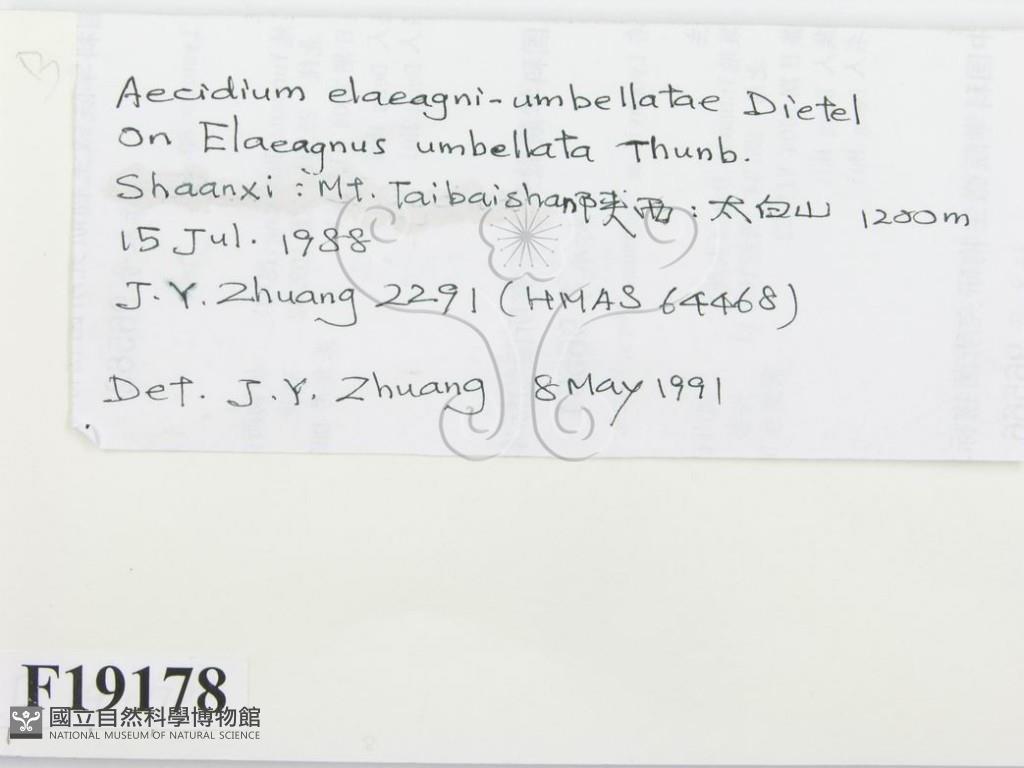 Aecidium elaeagni-umbellatae Dietel
on Elaeagnus umbellata Thunb.
Shaanxi: Mt. Taibaishan 陕西: 太白山 1200m
15 Jul. 1988
J.Y. Zhuang 2291 (HMAS 64468)
Det. J.Y. Zhuang 8 May 1991
F19178
國立自然科學博物館
NATIONAL MUSEUM OF NATURAL SCIENCE